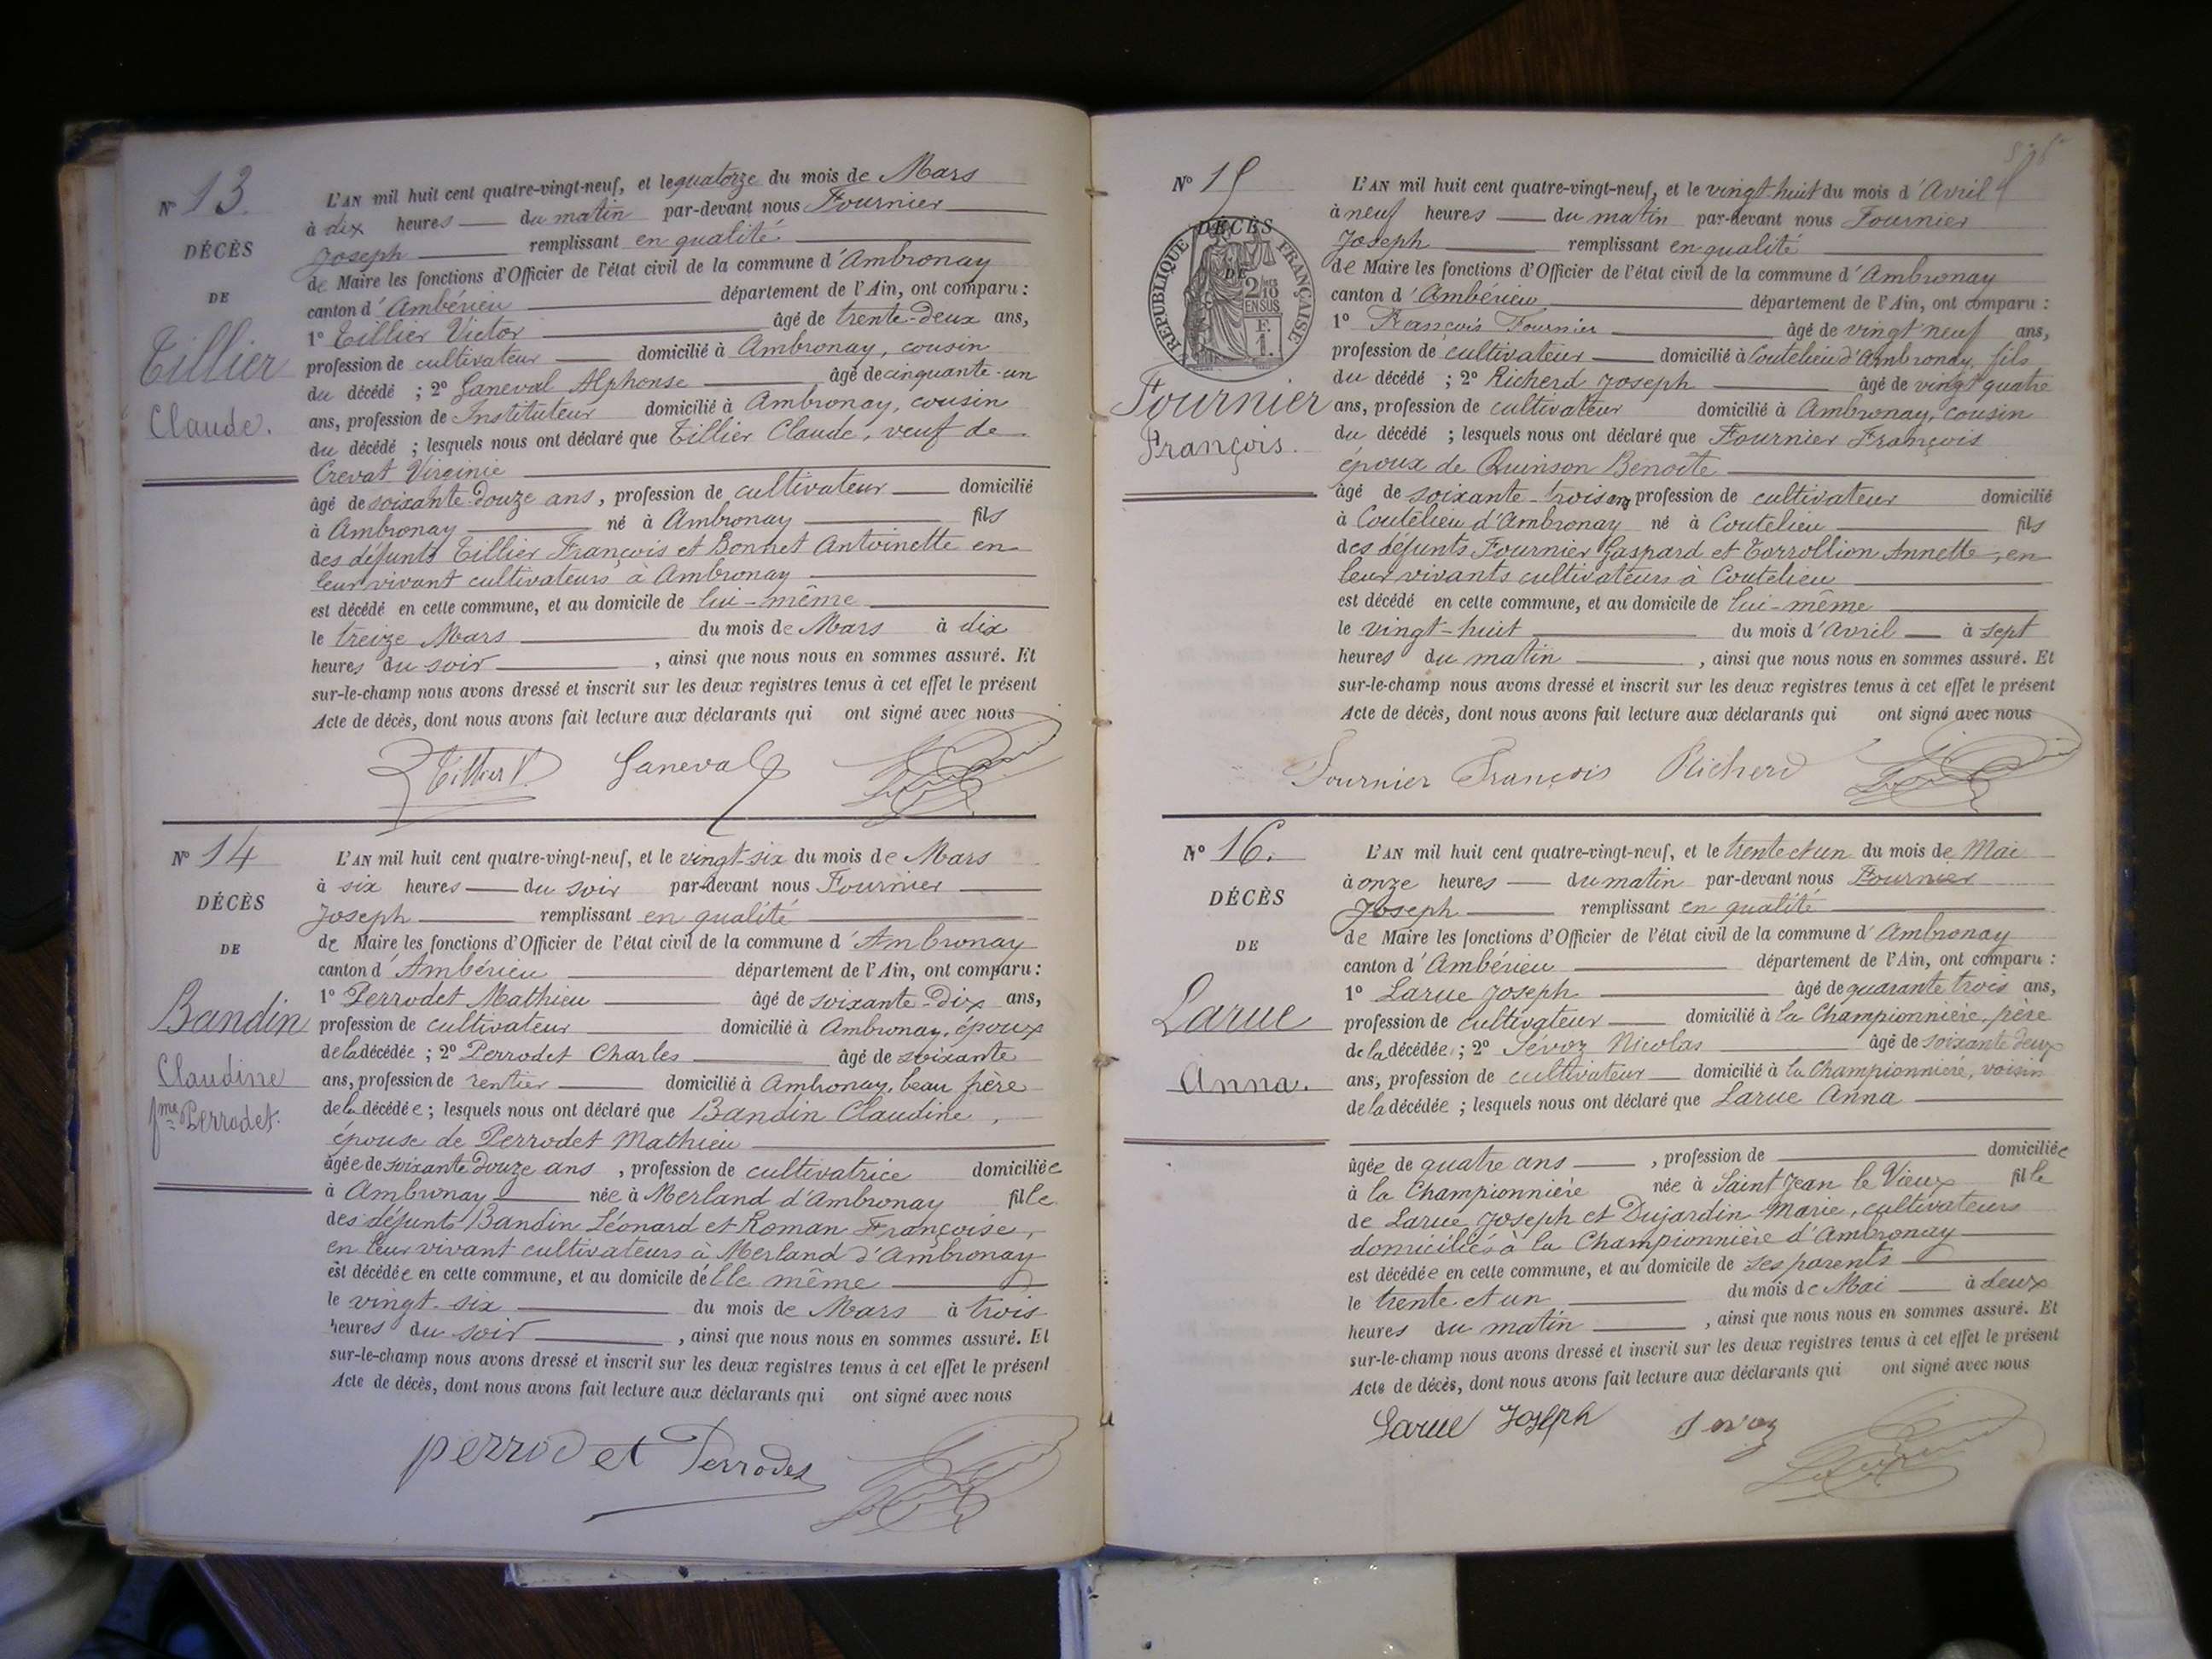 Nº 13.
DÉCÈS
DE
Tillier
Claude.
L'AN mil huit cent quatre-vingt-neuf, et le quatorze du mois de Mars
à dix heures du matin par-devant nous Fournier
Joseph remplissant en qualité
de Maire les fonctions d'Officier de l'état civil de la commune d'Ambronay
canton d'Ambérieu département de l'Ain, ont comparu :
1º Tillier Victor âgé de trente-deux ans,
profession de cultivateur domicilié à Ambronay, cousin
du décédé ; 2º Ganeval Alphonse âgé de cinquante-un
ans, profession de Instituteur domicilié à Ambronay, cousin
du décédé ; lesquels nous ont déclaré que Tillier Claude, veuf de
Crevat Virginie
âgé de soixante-douze ans, profession de cultivateur domicilié
à Ambronay né à Ambronay fils
des défunts Tillier François et Bonnet Antoinette en
leur vivant cultivateurs à Ambronay
est décédé en cette commune, et au domicile de lui-même
le treize Mars du mois de Mars à dix
heures du soir, ainsi que nous nous en sommes assuré. Et
sur-le-champ nous avons dressé et inscrit sur les deux registres tenus à cet effet le présent
Acte de décès, dont nous avons fait lecture aux déclarants qui ont signé avec nous
Tillier V Ganeval
Nº 14
DÉCÈS
DE
Bandin
Claudine
fme Perrodet.
L'AN mil huit cent quatre-vingt-neuf, et le vingt-six du mois de Mars
à six heures du soir par-devant nous Fournier
Joseph remplissant en qualité
de Maire les fonctions d'Officier de l'état civil de la commune d'Ambronay
canton d'Ambérieu département de l'Ain, ont comparu :
1º Perrodet Mathieu âgé de soixante-Dix ans,
profession de cultivateur domicilié à Ambronay, époux
de la décédée ; 2º Perrodet Charles âgé de soixante
ans, profession de rentier domicilié à Ambronay, beau frère
de la décédée ; lesquels nous ont déclaré que Bandin Claudine,
épouse de Perrodet Mathieu
âgée de soixante douze ans, profession de cultivatrice domiciliée
à Ambronay née à Merland d'Ambronay fille
des défunts Bandin Léonard et Roman Françoise,
en leur vivant cultivateurs à Merland d'Ambronay
est décédée en cette commune, et au domicile d'elle même
le vingt-six du mois de Mars à trois
heures du soir, ainsi que nous nous en sommes assuré. Et
sur-le-champ nous avons dressé et inscrit sur les deux registres tenus à cet effet le présent
Acte de décès, dont nous avons fait lecture aux déclarants qui ont signé avec nous
perrodet Perrodet
Nº 15
DÉCÈS
DE
RÉPUBLIQUE FRANÇAISE
2/10
EN SUS
F.
1.
Fournier
François.
L'AN mil huit cent quatre-vingt-neuf, et le vingt huit du mois d'Avril
à neuf heures du matin par-devant nous Fournier
Joseph remplissant en qualité
de Maire les fonctions d'Officier de l'état civil de la commune d'Ambronay
canton d'Ambérieu département de l'Ain, ont comparu :
1º François Fournier âgé de vingt neuf ans,
profession de cultivateur domicilié à Coutelieu d'Ambronay, fils
du décédé ; 2º Richerd Joseph âgé de vingt quatre
ans, profession de cultivateur domicilié à Ambronay, cousin
du décédé ; lesquels nous ont déclaré que Fournier François
époux de Quinson Benoîte
âgé de soixante-trois ans profession de cultivateur domicilié
à Coutelieu d'Ambronay né à Coutelieu fils
des défunts Fournier Gaspard et Torrollion Annette, en
leur vivants cultivateurs à Coutelieu
est décédé en cette commune, et au domicile de lui-même
le vingt-huit du mois d'Avril à sept
heures du matin, ainsi que nous nous en sommes assuré. Et
sur-le-champ nous avons dressé et inscrit sur les deux registres tenus à cet effet le présent
Acte de décès, dont nous avons fait lecture aux déclarants qui ont signé avec nous
Fournier François Richerd
Nº 16.
DÉCÈS
DE
Larue
Anna.
L'AN mil huit cent quatre-vingt-neuf, et le trente et un du mois de Mai
à onze heures du matin par-devant nous Fournier
Joseph remplissant en qualité
de Maire les fonctions d'Officier de l'état civil de la commune d'Ambronay
canton d'Ambérieu département de l'Ain, ont comparu :
1º Larue Joseph âgé de quarante trois ans,
profession de cultivateur domicilié à la Championnière, père
de la décédée ; 2º Sévoz Nicolas âgé de soixante deux
ans, profession de cultivateur domicilié à la Championnière, voisin
de la décédée ; lesquels nous ont déclaré que Larue Anna
âgée de quatre ans, profession de domiciliée
à la Championnière née à Saint Jean le Vieux fille
de Larue Joseph et Dujardin Marie, cultivateurs
domiciliés à la Championnière d'Ambronay
est décédée en cette commune, et au domicile de ses parents
le trente et un du mois de Mai à deux
heures du matin, ainsi que nous nous en sommes assuré. Et
sur-le-champ nous avons dressé et inscrit sur les deux registres tenus à cet effet le présent
Acte de décès, dont nous avons fait lecture aux déclarants qui ont signé avec nous
Larue Joseph Sevoz